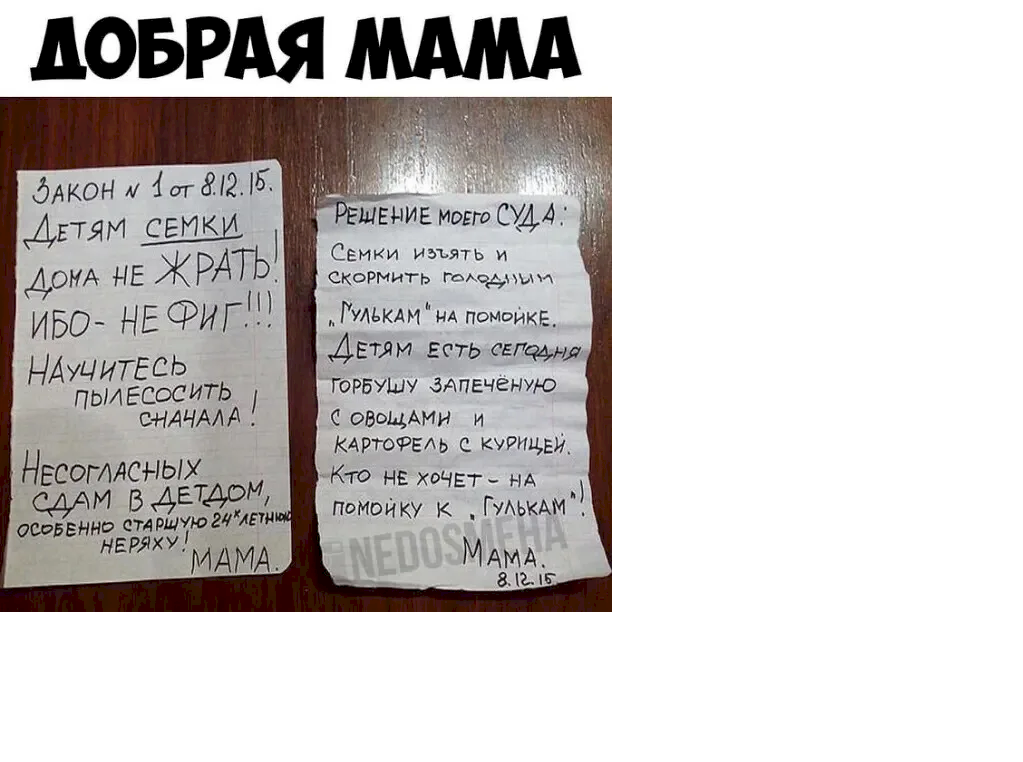 ДОБРАЯ МАМА
ЗАКОН N 1 от 8.12.15.
ДЕТЯМ СЕМКИ
ДОМА НЕ ЖРАТЬ!
ИБО - НЕ ФИГ!!!
НАУЧИТЕСЬ
ПЫЛЕСОСИТЬ
СНАЧАЛА!
НЕСОГЛАСНЫХ
СДАМ В ДЕТДОМ,
ОСОБЕННО СТАРШУЮ 24х ЛЕТНЮЮ
НЕРЯХУ!
МАМА.
РЕШЕНИЕ МОЕГО СУДА:
СЕМКИ ИЗЪЯТЬ И
СКОРМИТЬ ГОЛОДНЫМ
„ГУЛЬКАМ" НА ПОМОЙКЕ.
ДЕТЯМ ЕСТЬ СЕГОДНЯ
ГОРБУШУ ЗАПЕЧЁНУЮ
С ОВОЩАМИ И
КАРТОФЕЛЬ С КУРИЦЕЙ.
КТО НЕ ХОЧЕТ - НА
ПОМОЙКУ К „ГУЛЬКАМ"!
NEDOSMEHA
МАМА.
8.12.15.